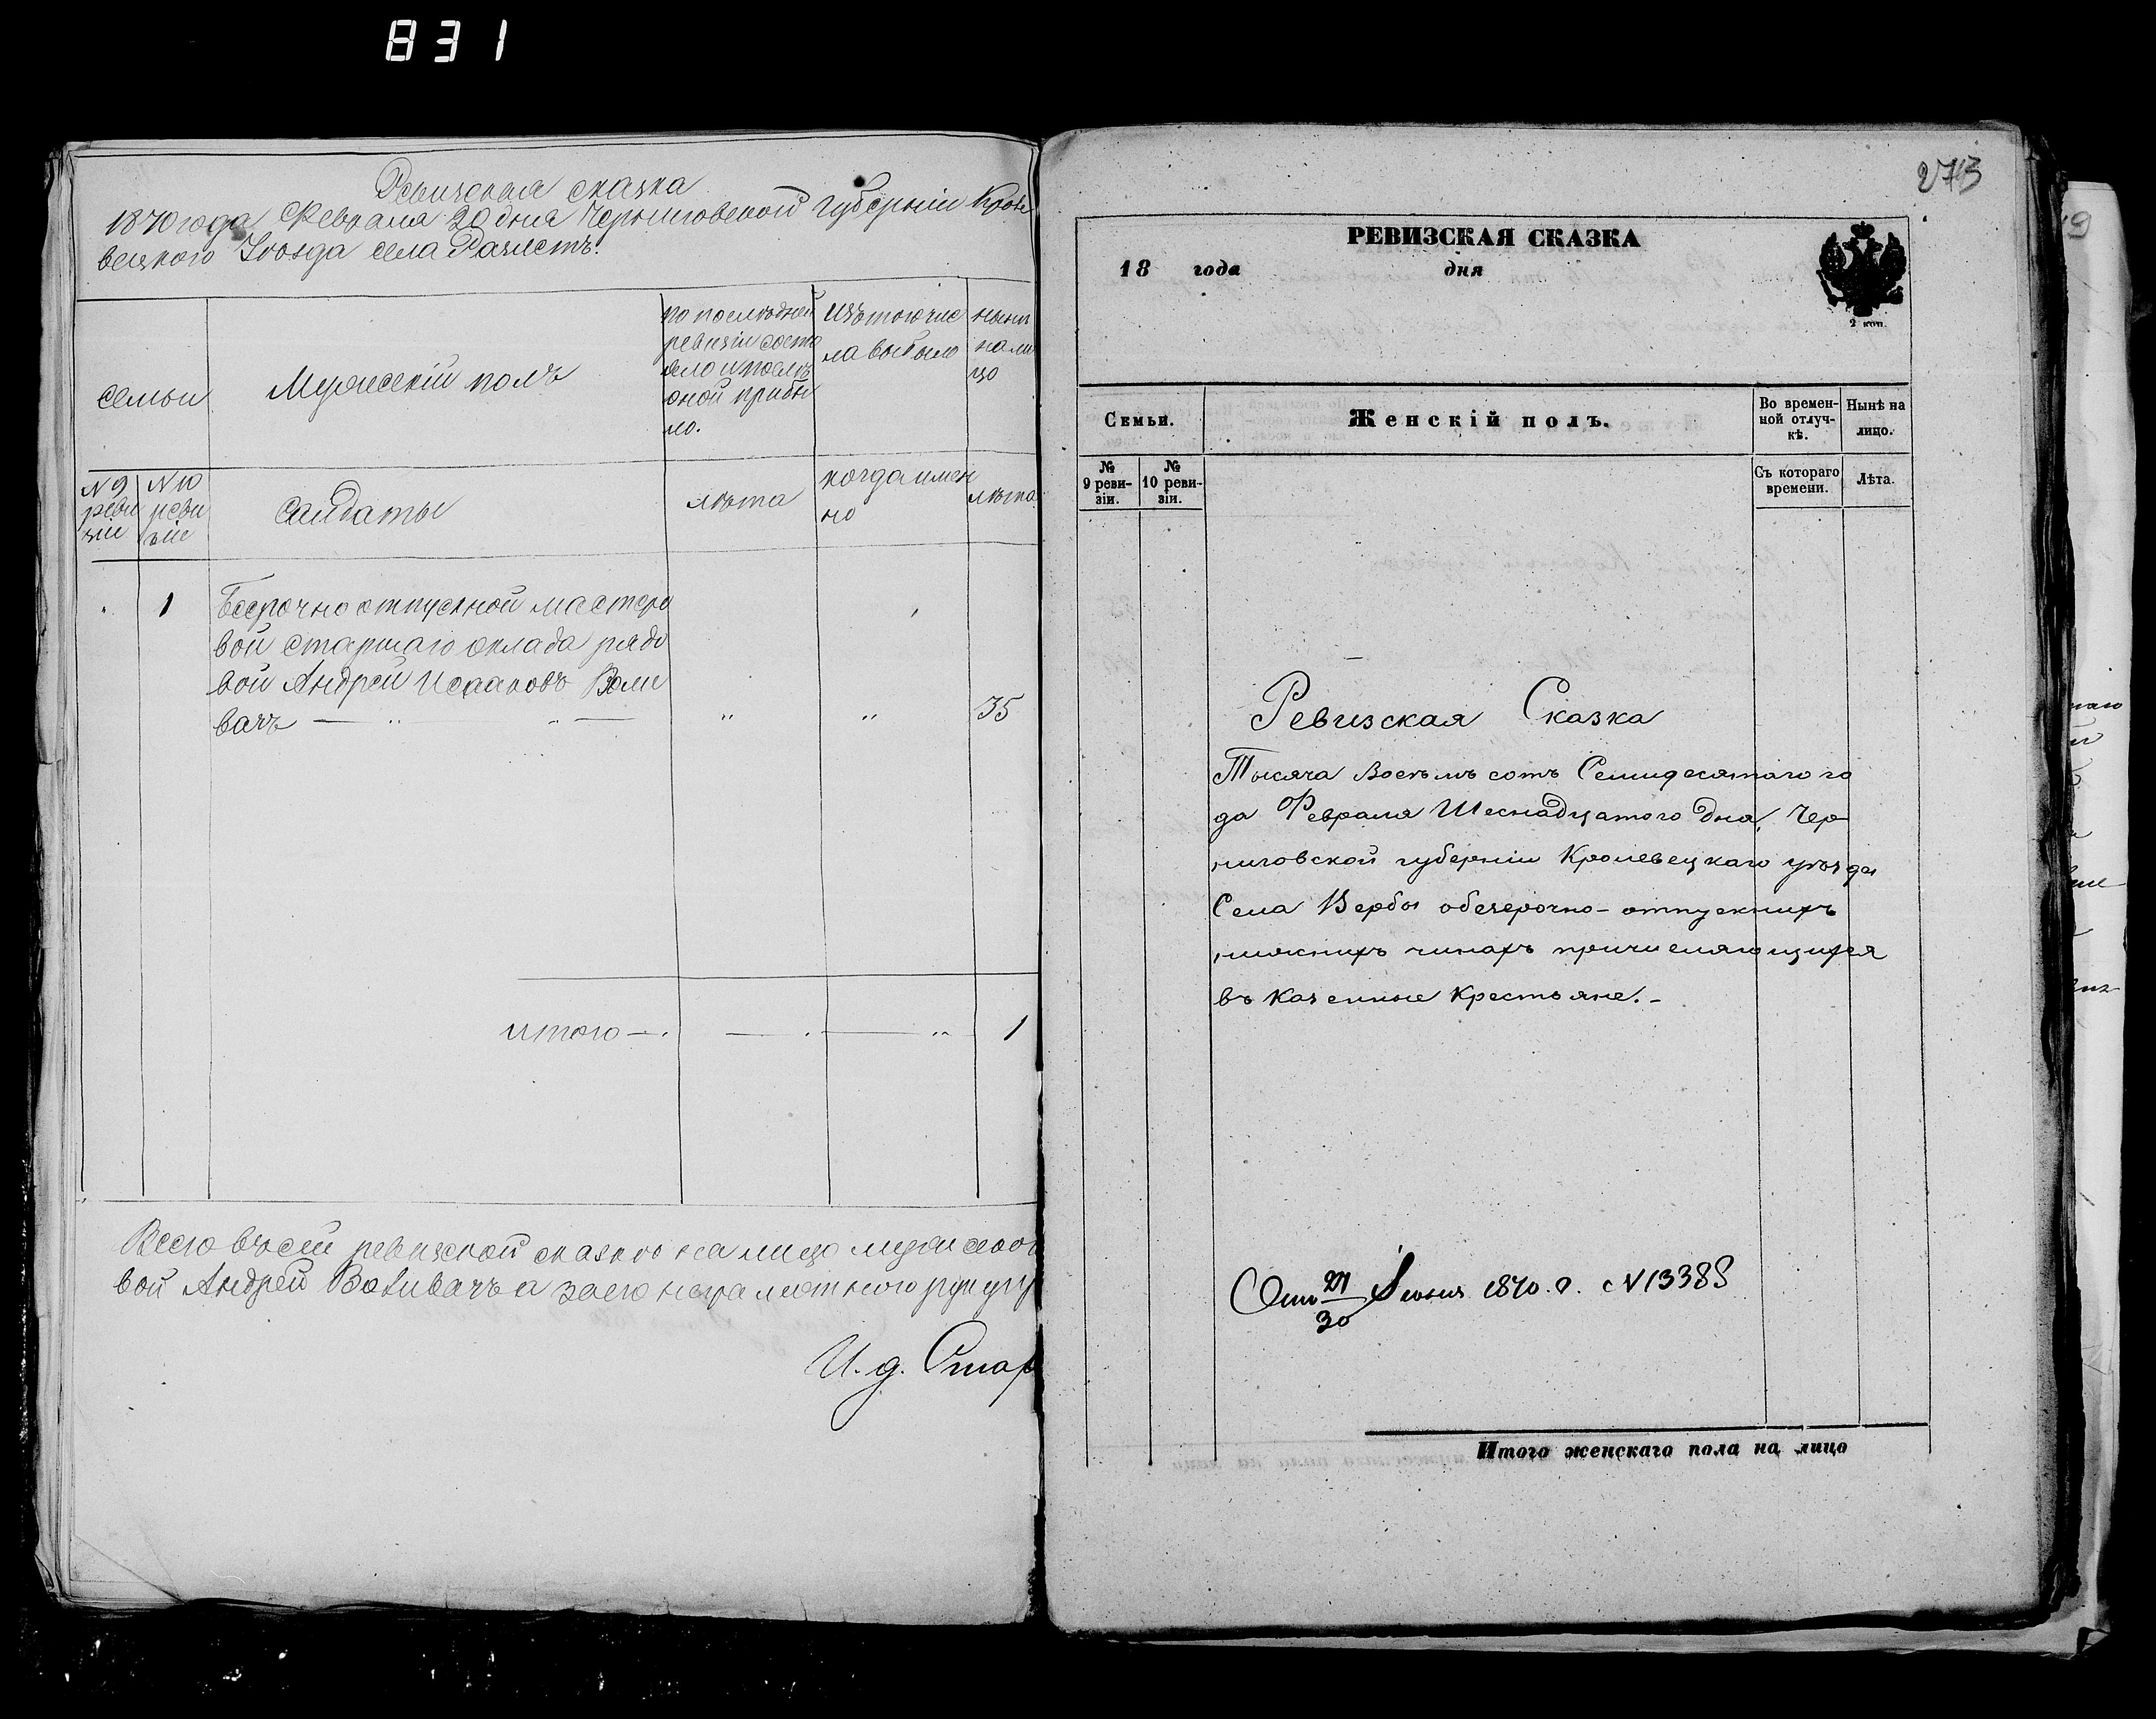 831
Ревизская сказка
1870 года Февраля 20 дня Черниговской губерніи Кроле
вецкого Уѣзда села
семьи
Мужескій полъ
по послѣдней
ревизіи состо
яло и послѣ
оной прибы
ло.
Изъ того чис
ла выбыло
нынѣ
на ли
цо
N 9
реви
зіи
N 10
реви
зіи
Салдаты
лѣта
когда имен
но
лѣта
1
Бесрочно отпускной мастеро
вой старшаго оклада рядо
вой Андрей Исааковъ
вачъ — " " —
" " 35
итого — . — . — " 1
Всего въ сей ревизской сказкѣ на лицо
вой Андрей а за его неграмотного
И. д. Стар
273
РЕВИЗСКАЯ СКАЗКА
18 года дня
2 коп.
Семьи.
Женскій полъ.
Во времен-
ной отлуч-
кѣ.
Нынѣ на
лицо.
№
9 реви-
зіи.
№
10 реви-
зіи.
Съ котораго
времени.
Лѣта.
Ревизская Сказка
Тысяча Восемъ сотъ Семидесятаго го
да Февраля Шеснадцатого дня, Чер-
ниговской губерніи Кролевецкаго уѣзда
Села Вербы обезсрочно-отпускныхъ
нижнихъ чинахъ причисляющихся
въ казенные крестьяне.-
Отъ 27/30 Іюня 1870. г. N 13388
Итого женскаго пола на лицо